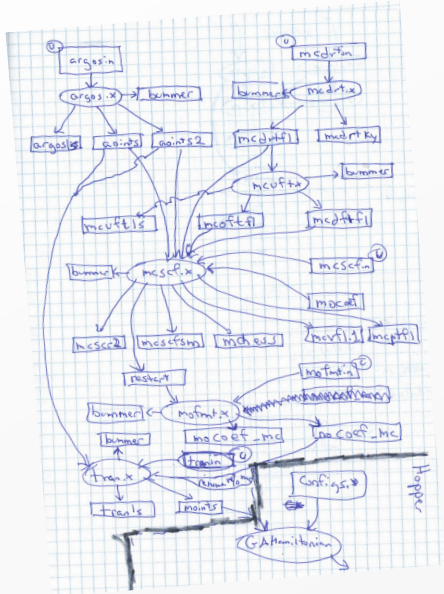 U
argosin
argos.x
bummer
argosls
aoints
aoints2
U
mcdrtin
bummer
mcdrt.x
mcdrtfl
mcdrtky
mcuft.x
bummer
mcuftls
mcoftfl
mcdftfl
bummer
mcscf.x
mcscfin
U
mocoef
mcscr2
mcscfsm
mchess
mcvfl.1
mcptfl
restart
mofmtin
U
bummer
mofmt.x
mocoef_mc
nocoef_mc
bummer
tranin
U
tran.x
tranls
moints
configs.*
Hopper
GAHamiltonian